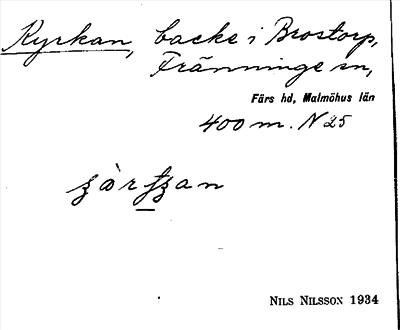 Kyrkan, backe i Brostorp,
Fränninge sn,
Färs hd, Malmöhus län
400 m. N 25
NILS NILSSON 1934